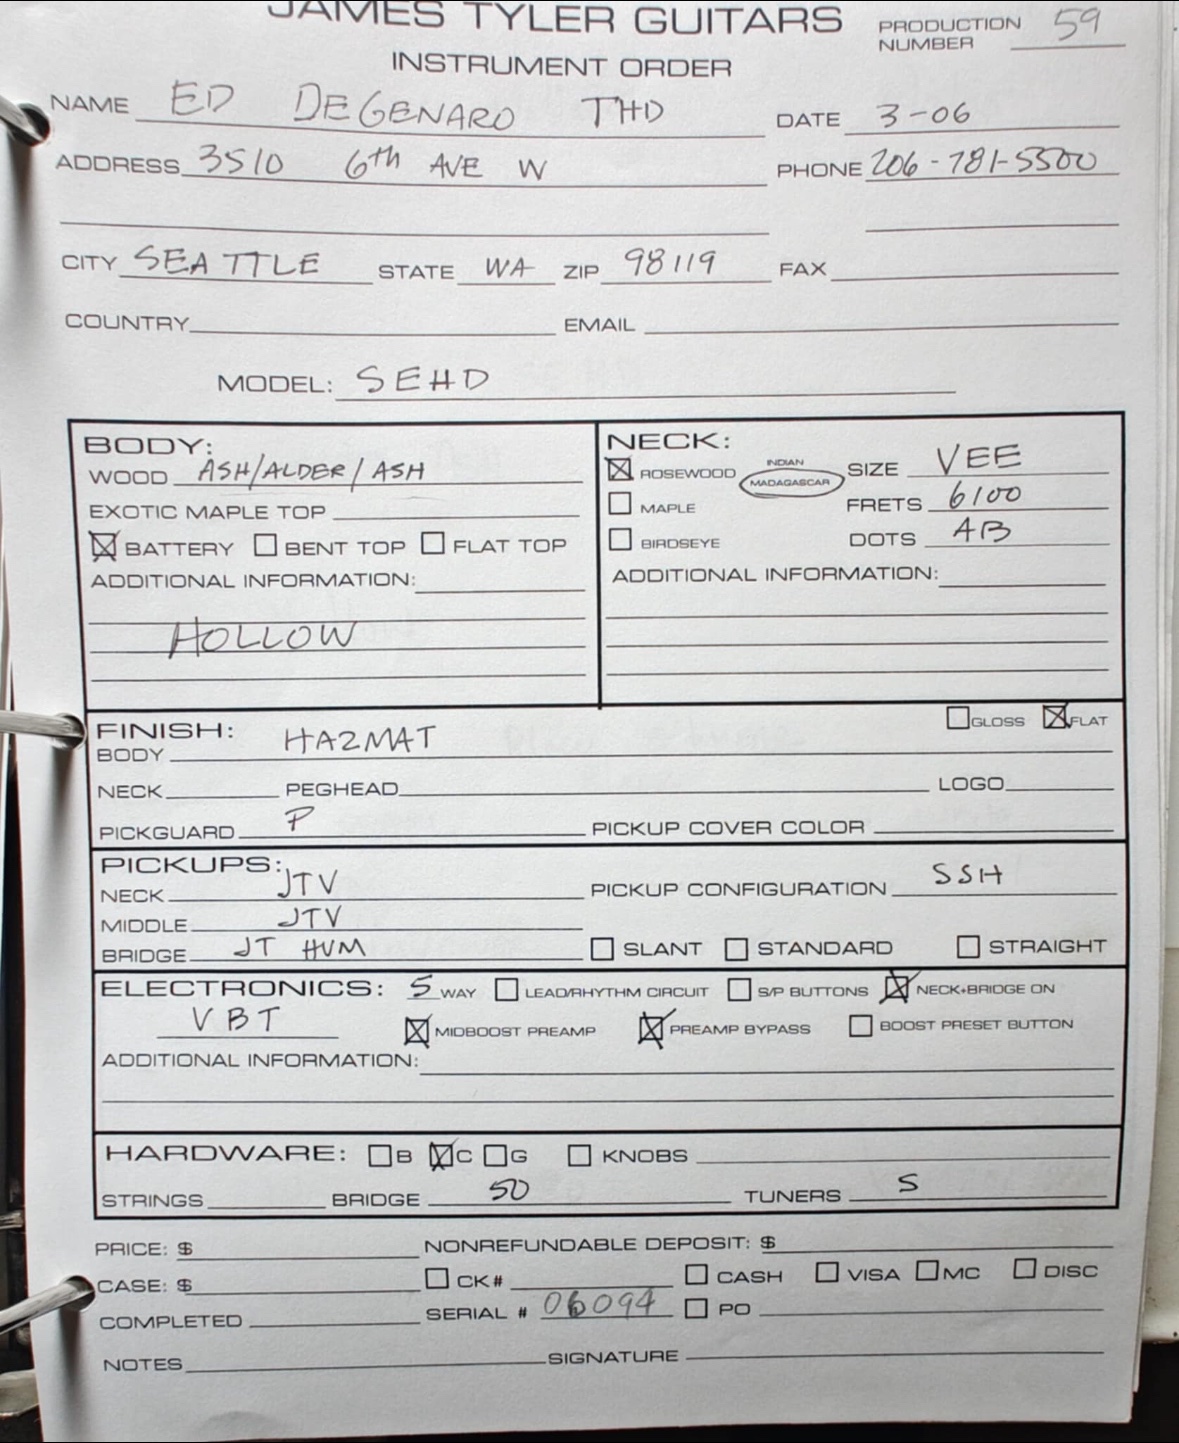 JAMES TYLER GUITARS
PRODUCTION NUMBER 59
INSTRUMENT ORDER
NAME ED DEGENARO THD DATE 3-06
ADDRESS 3510 6th AVE W PHONE 206-781-5500
CITY SEATTLE STATE WA ZIP 98119 FAX
COUNTRY EMAIL
MODEL: SEHD
BODY:
WOOD ASH/ALDER/ASH
EXOTIC MAPLE TOP
BATTERY BENT TOP FLAT TOP
ADDITIONAL INFORMATION:
HOLLOW
NECK:
ROSEWOOD INDIAN MADAGASCAR SIZE VEE
MAPLE FRETS 6100
BIRDSEYE DOTS AB
ADDITIONAL INFORMATION:
FINISH: GLOSS FLAT
BODY HAZMAT
NECK PEGHEAD LOGO
PICKGUARD P PICKUP COVER COLOR
PICKUPS:
NECK JTV PICKUP CONFIGURATION SSH
MIDDLE JTV
BRIDGE JT HUM SLANT STANDARD STRAIGHT
ELECTRONICS: 5 WAY LEAD/RHYTHM CIRCUIT S/P BUTTONS NECK+BRIDGE ON
VBT MIDBOOST PREAMP PREAMP BYPASS BOOST PRESET BUTTON
ADDITIONAL INFORMATION:
HARDWARE: B C G KNOBS
STRINGS BRIDGE 50 TUNERS S
PRICE: $ NONREFUNDABLE DEPOSIT: $
CASE: $ CK# CASH VISA MC DISC
COMPLETED SERIAL # 06094 PO
NOTES SIGNATURE